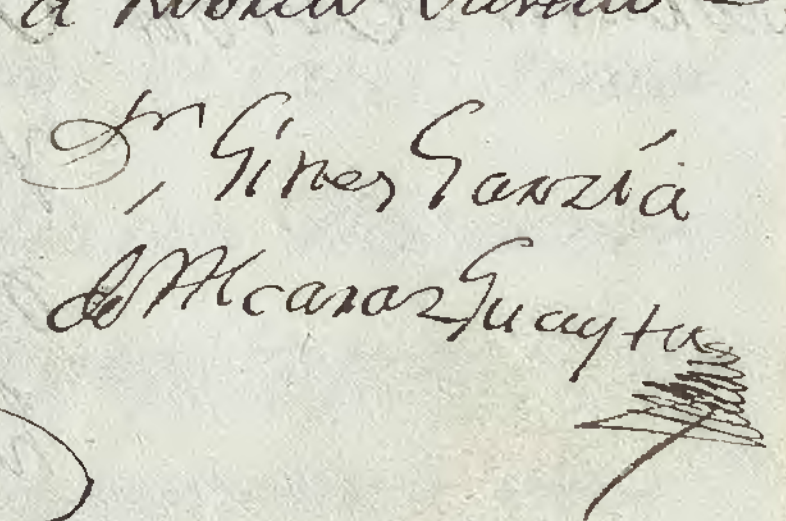 a
Dr, Gines Garzía
de Alcaraz Guayta